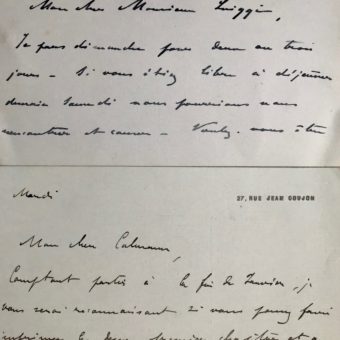 Mon cher Monsieur
Je pars dimanche pour deux ou trois
jours - Si vous étiez libre à déjeuner
demain Samedi nous pourrions nous
rencontrer et causer - Voulez-vous être
Mardi
27, RUE JEAN GOUJON
Mon cher Calmann,
Comptant partir à la fin de Janvier, je
vous serai reconnaissant si vous pouvez faire
imprimer le chapitre et